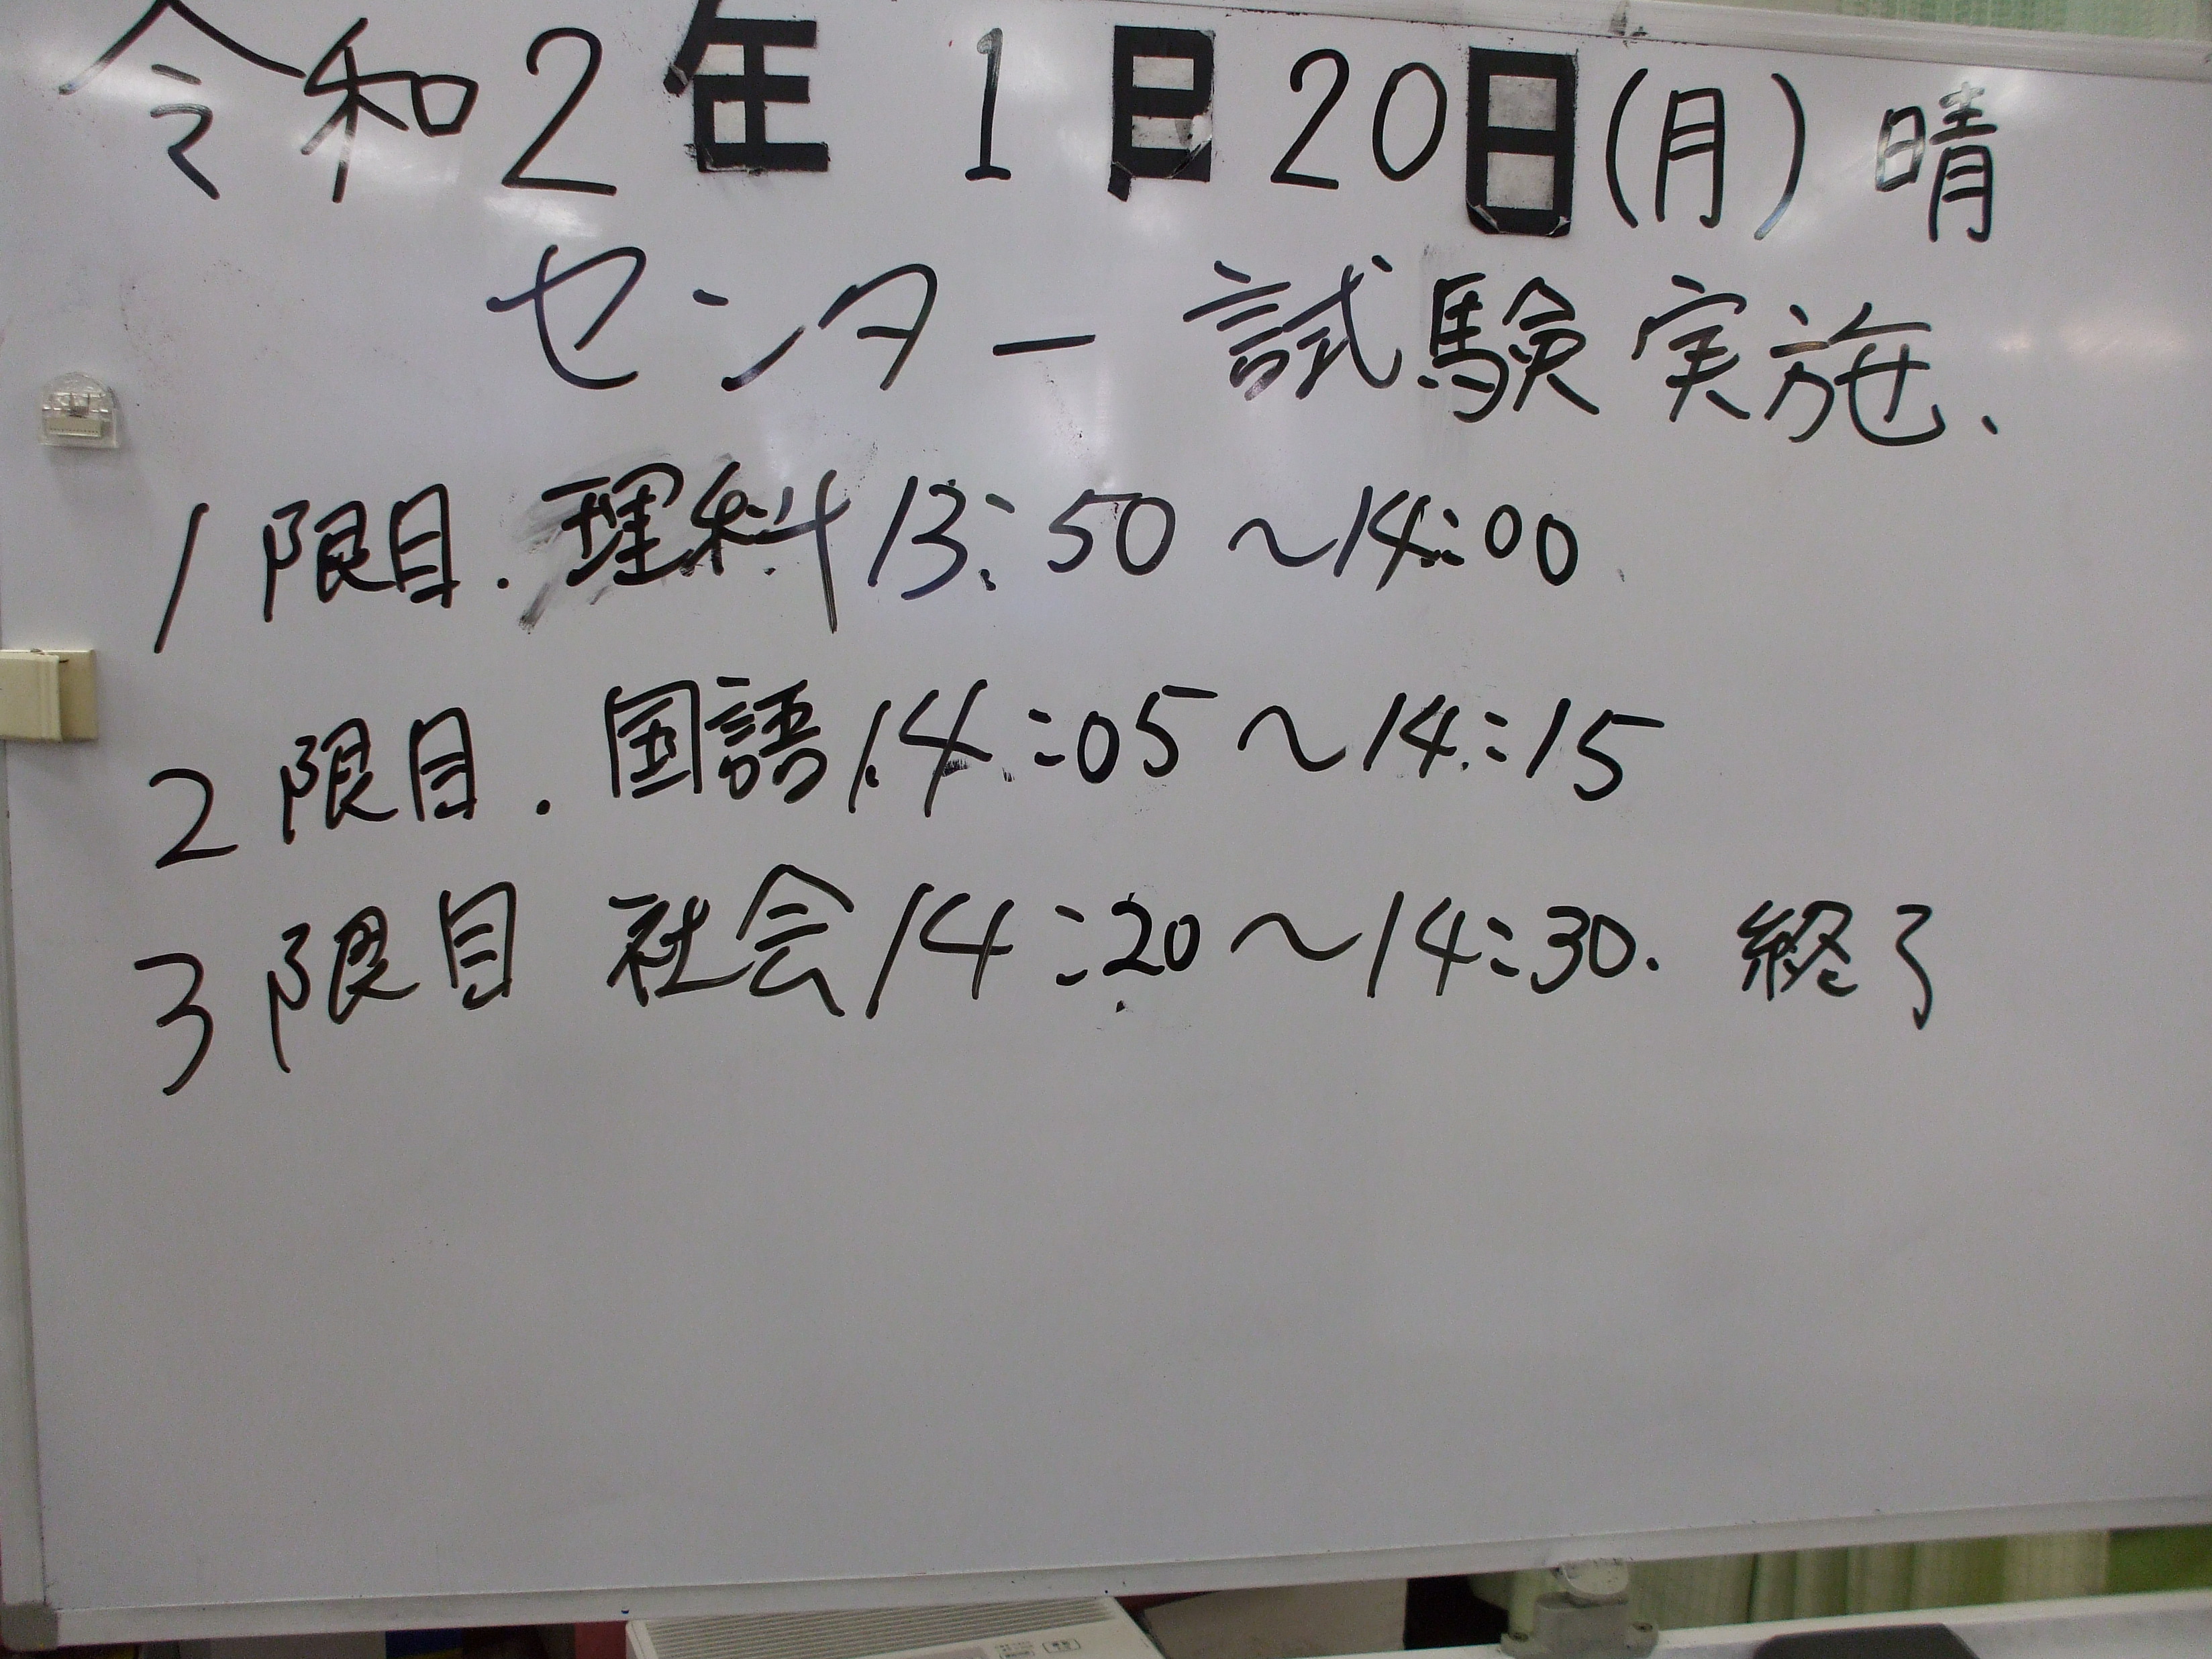 令和2年 1月20日(月) 晴
センター試験実施、
1限目.理科13:50～14:00
2限目.国語14:05～14:15
3限目 社会14:20～14:30. 終了